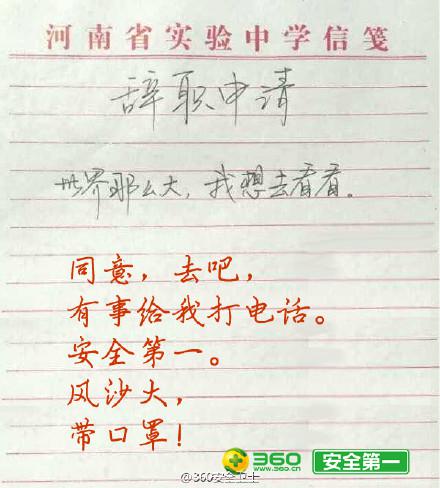 河南省实验中学信笺
辞职申请
世界那么大，我想去看看。
同意，去吧，
有事给我打电话。
安全第一。
风沙大，
带口罩！
360
www.360.cn
安全第一
@360安全卫士